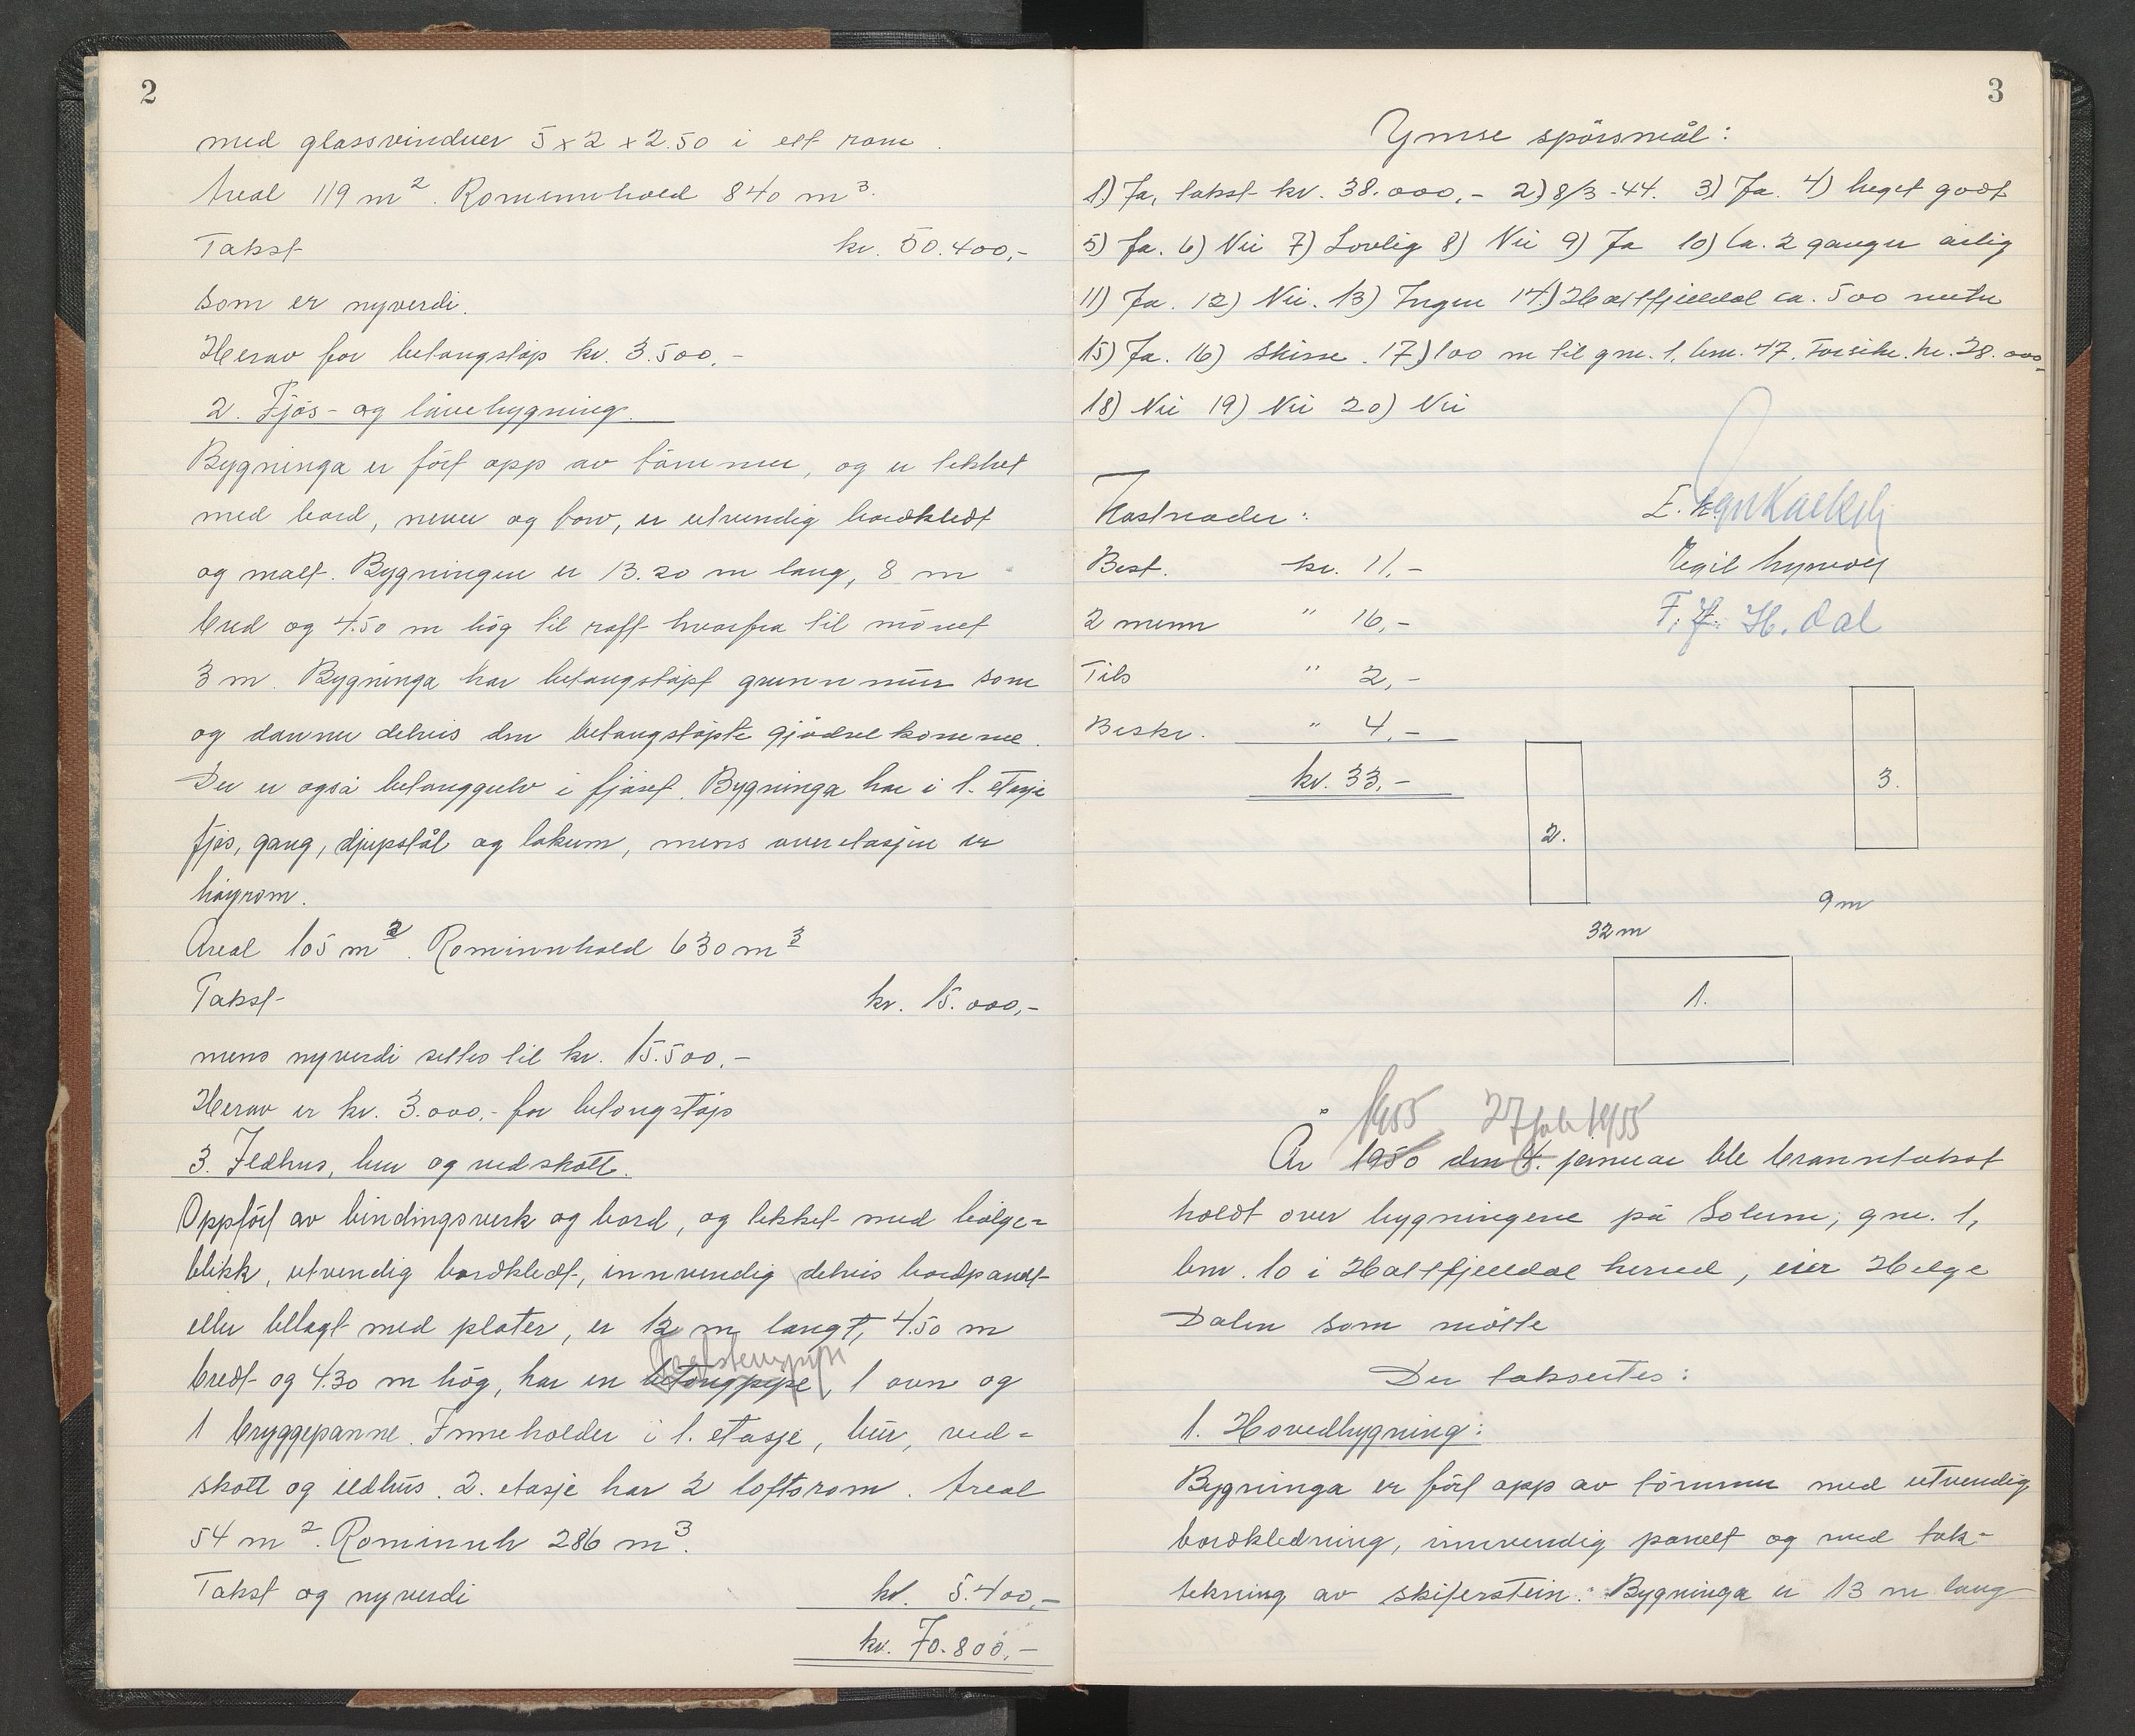 2
med glassvinduer 5 x 2 x 2.50 i ett rom.
Areal 119 m². Rominnhold 840 m³.
Takst kr. 50.400,-
som er nyverdi.
Herav for betongstøp kr. 3.500,-
2. Fjøs- og låvebygning.
Bygninga er ført opp av tømmer, og er tekket
med bord, never og torv, er utvendig bordkledt
og malt. Bygningen er 13.20 m lang, 8 m
bred og 4.50 m høg til raft hvorfra til mønet
3 m. Bygninga har betongstøpt grunnmur som
og danner delvis den betongstøpte gjødselkomme.
Der er også betonggulv i fjøset. Bygninga har i 1. etasje
fjøs, gang, djupstål og lokum, mens overetasjen er
høyrom.
Areal 105 m². Rominnhold 630 m³
Takst kr. 15.000,-
mens nyverdi settes til kr. 15.500,-
Herav er kr. 3.000,- for betongstøp
3. Ildhus, bur og vedskott.
Oppført av bindingsverk og bord, og tekket med bølge=
blikk, utvendig bordkledt, innvendig delvis bordpanelt
eller belagt med plater, er 12 m langt, 4.50 m
bredt og 4.30 m høg, har en betongpipe, 1 ovn og
1 bryggepanne. Inneholder i 1. etasje, bur, ved=
skott og ildhus. 2. etasje har 2 loftsrom. Areal
54 m². Rominnh 286 m³.
Takst og nyverdi kr. 5.400,-
kr. 70.800,-
3
Ymse spørsmål:
1) Ja, takst kr. 38.000,- 2) 8/3-44. 3) Ja. 4) Meget godt
5) Ja. 6) Nei 7) Lovlig 8) Nei 9) Ja 10) Ca. 2 ganger årlig
11) Ja. 12) Nei. 13) Ingen 14) Hattfjelldal ca. 500 meter
15) Ja. 16) Skisse. 17) 100 m til gnr. 1, bnr. 47. Forsikr. kr. 28.000,-
18) Nei 19) Nei 20) Nei
Kostnader:
Best. kr. 11,-
Egil
2 menn " 16,-
F. H. Dal
Tils " 2,-
Beskr. " 4,-
kr. 33,-
3.
2.
9 m
32 m
1.
1955 27 feb 1955
År 1950 den 4. januar ble branntakst
holdt over bygningene på Solum, gnr. 1,
bnr. 10 i Hattfjelldal herred, eier Helge
Dalen som møtte
Der taksertes:
1. Hovedbygning:
Bygninga er ført opp av tømmer med utvendig
bordkledning, innvendig panelt og med tak-
tekning av skiferstein. Bygninga er 13 m lang